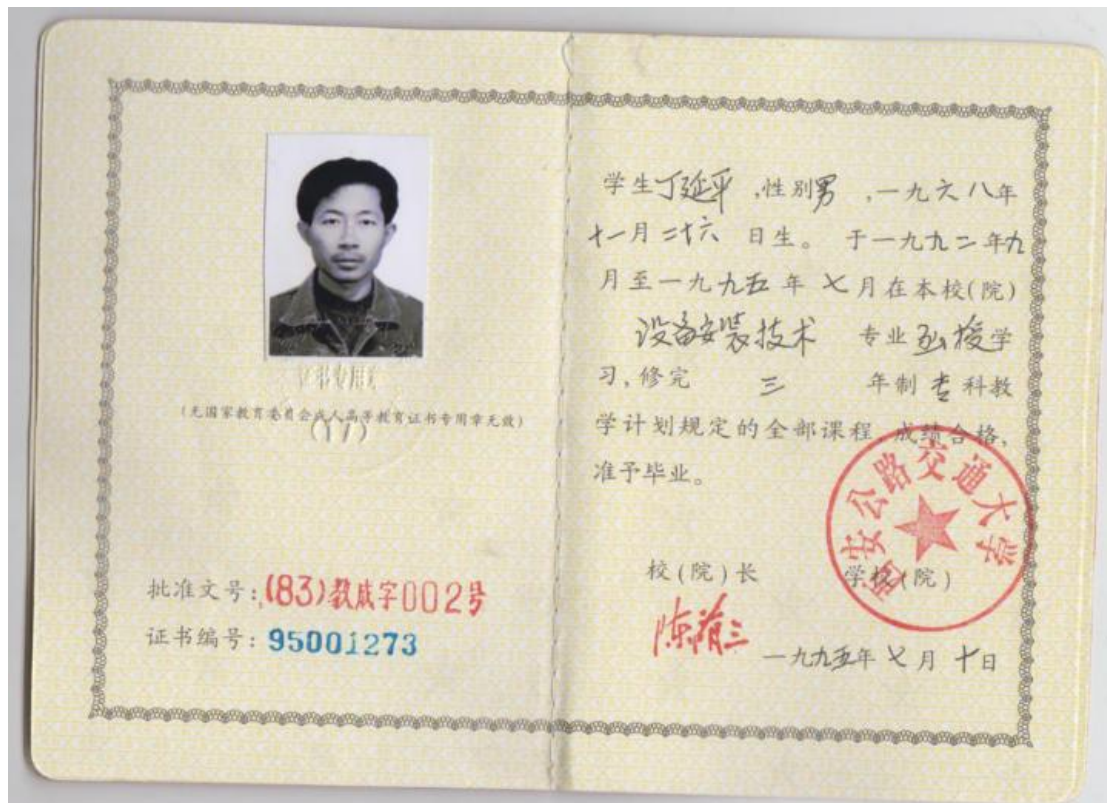 证书专用章
(无国家教育委员会成人高等教育证书专用章无效)
(17)
批准文号:(83)教成字002号
证书编号:95001273
学生丁延平,性别男,一九六八年
十一月二十六日生。于一九九二年九
月至一九九五年七月在本校(院)
设备安装技术 专业函授学
习,修完 三 年制专科教
学计划规定的全部课程,成绩合格,
准予毕业。
校(院)长 学校(院)
西安公路交通大学
一九九五年七月十日